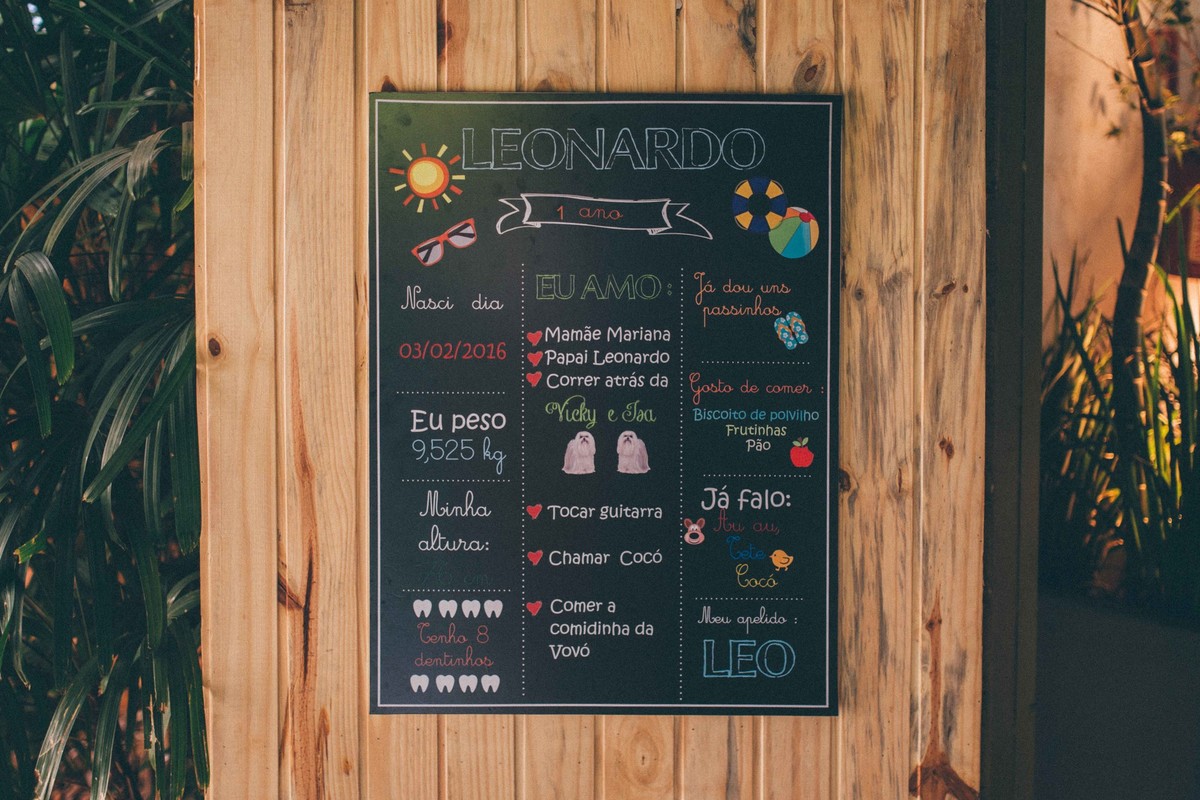 LEONARDO
1 ano
Nasci dia
03/02/2016
Eu peso
9,525 kg
Minha
altura:
Tenho 8
dentinhos
EU AMO:
Mamãe Mariana
Papai Leonardo
Correr atrás da
Vicky e Isa
Tocar guitarra
Chamar Cocó
Comer a
comidinha da
Vovó
Já dou uns
passinhos
Gosto de comer :
Biscoito de polvilho
Frutinhas
Pão
Já falo:
Au au,
Tete
Cocó
Meu apelido :
LEO